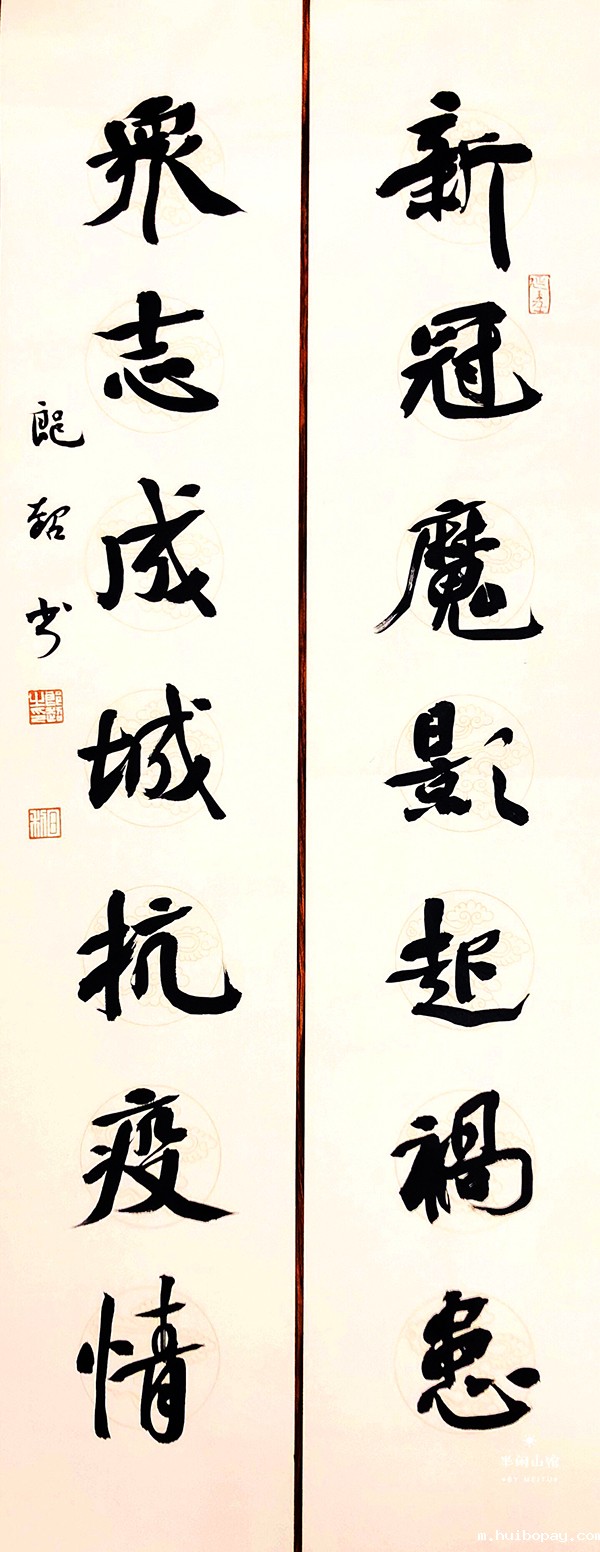 新冠魔影起禍患
眾志成城抗疫情
郎超书
m.huibopay.com